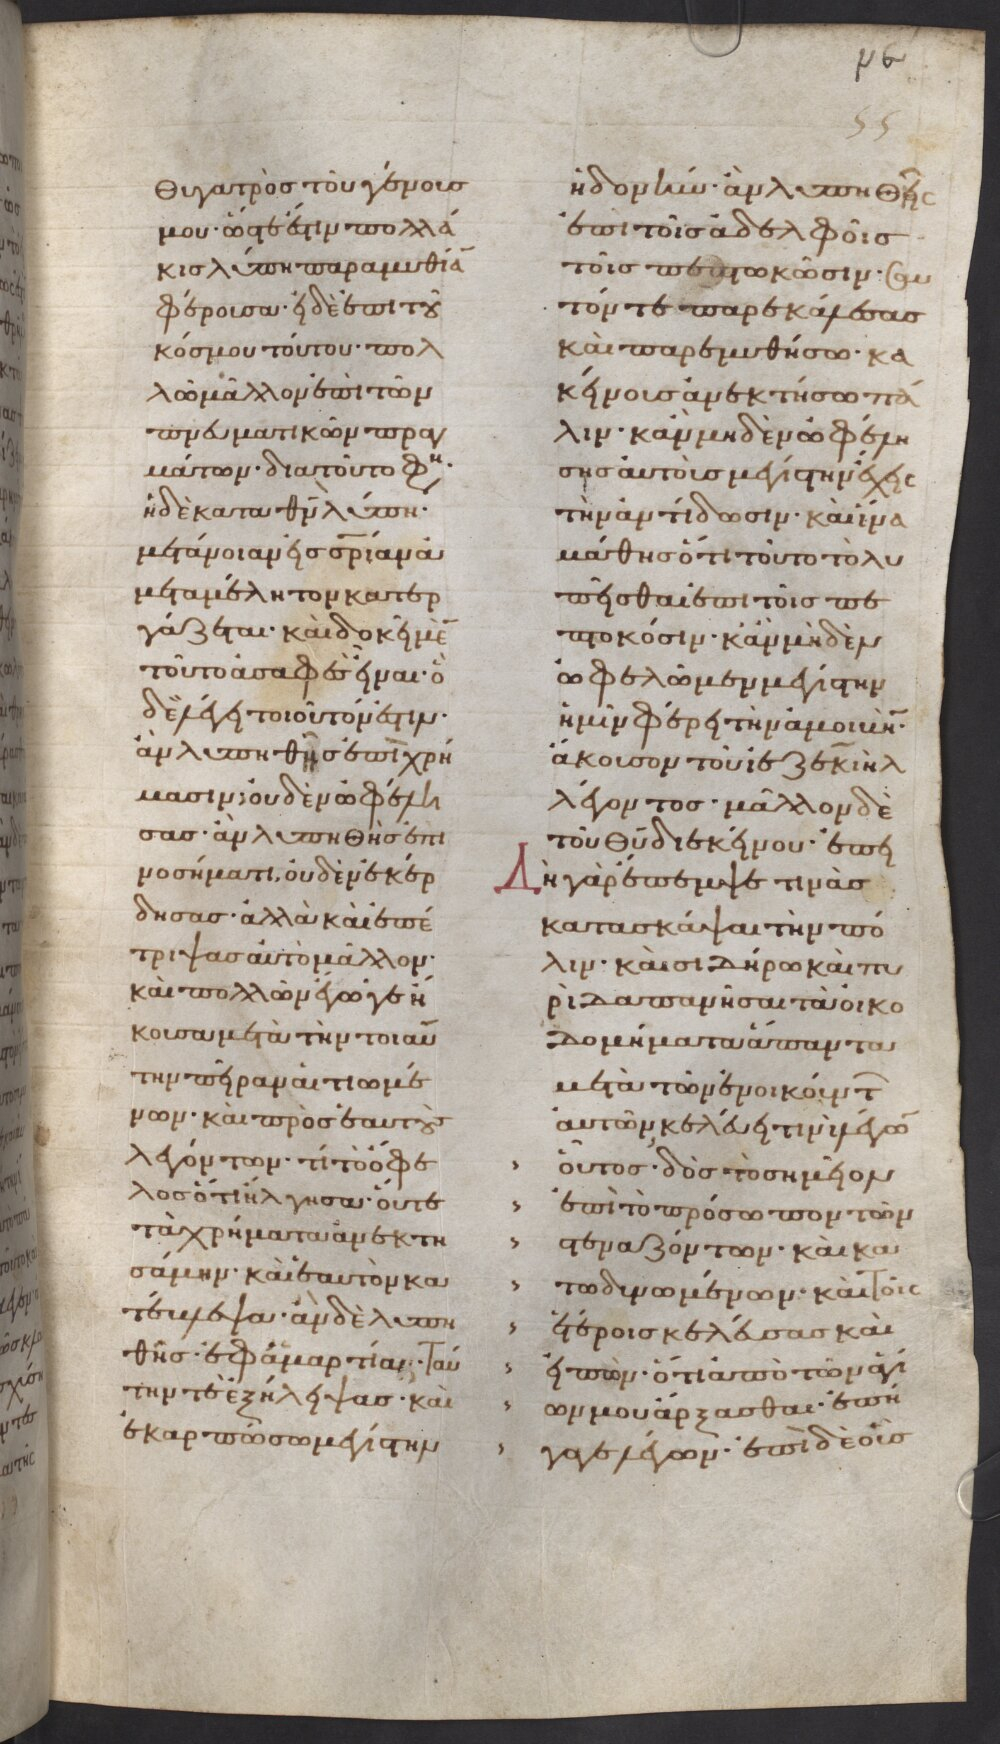 με
55
θυγατρὸσ τοῦ γένουσ
μου· ὥστε ἔστιν πολλά
κισ λύπη παραμυθία
φέρουσα· εἰ δὲ ἐπι τοῦ
κόσμου τούτου· πολ
λῶ μᾶλλον ἐπὶ τῶν
πνευματικῶν πραγ
μάτων· δια τοῦτο φη·
ἡ δὲ κατα θν λύπη·
μετάνοιαν εἰσ σριαν ἀ
μεταμέλητον κατερ
γάζεται· καὶ δοκεῖ μὲ
τοῦτο ἀσαφὲσ εἶναι· ὃ
δὲ λέγει τοιοῦτόν ἐστιν·
ἀν λυπηθῆσ ἐπὶ χρή
μασιν· οὐδὲν ὠφέλη
σασ· ἀν λυπηθῆσ ἐπι
νοσήματι, οὐδὲν ἐκέρ
δησασ· ἀλλὰ καὶ ἐπέ
τριψασ αὐτὸ μᾶλλον·
καὶ πολλῶν ἐγώγε ἤ
κουσα μετὰ τὴν τοιαύ
την πεῖραν αἰτιωμέ
νων· καὶ πρὸσ ἑαυτοὺσ
λεγόντων· τί τὸ ὄφε
λοσ ὅτι ἤλγησα· οὔτε
τὰ χρήματα ἀνεκτη
σάμην· καὶ ἐμαυτὸν κα
τέκοψα· ἀν δὲ λυπη
θῆσ· ἐφ ἁμαρτίαν· ταύ
την τε ἐξήλειψασ· καὶ
ἐκαρπώσω μεγίστην
ἡδονήν· ἀν λυπηθῆσ
ἐπὶ τοῖσ ἀδελφοῖσ
τοῖσ πεπτωκῶσιν· σαυ
τόν τε παρεκάλεσασ
καὶ παρεμυθήσω· κα
κείνουσ ἀνεκτήσω πά
λιν· κἀν μηδὲν ὠφελη
σησ αὐτοὺσ μεγίστην ἔχεισ
τὴν ἀντίδοσιν· καὶ ἵνα
μάθησ ὅτι τοῦτο τὸ λυ
πεῖσθαι ἐπι τοῖσ πε
πτοκόσιν· κἀν μηδὲν
ὠφελῶμεν μεγίστην
ἡμῖν φέρει τὴν ἀμοιβήν·
ἄκουσον τοῦ ἰεζεκιὴλ
λέγοντοσ· μᾶλλον δὲ
τοῦ θυ δι ἐκείνου· ἐπει
Δὴ γὰρ ἔπεμψε τινὰσ
κατασκάψαι τὴν πό
λιν· καὶ σιδήρω καὶ πυ
ρὶ δαπανῆσαι τὰ οἰκο
δομήματα ἅπαντα
μετὰ τῶν ἐνοικούντ
αὐτῶν κελεύει τινὶ λέγων
οὕτοσ· δὸσ τὸ σημεῖον
ἐπὶ τὸ πρόσωπον τῶν
στεναζόντων· καὶ κα
τωδινωμένων· καὶ τοῖσ
ἑτέροισ κελεύσασ καὶ
εἰπὼν· ὅτι ἀπὸ τῶν ἁγί
ων μου ἄρξασθαι· ἐπή
γαγε λέγων· ἐπὶ δὲ οἷσ